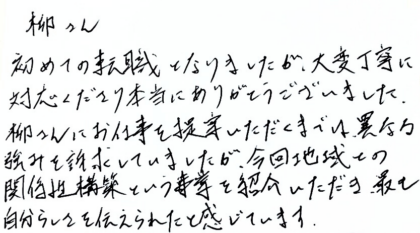 柳さん
初めての転職となりましたが、大変丁寧に
対応くださり本当にありがとうございました。
柳さんにお仕事を提案いただくまでは、異なる
強みを訴求していましたが、今回地域との
関係性構築という事業を紹介いただき、最も
自分らしさを伝えられたと感じています。